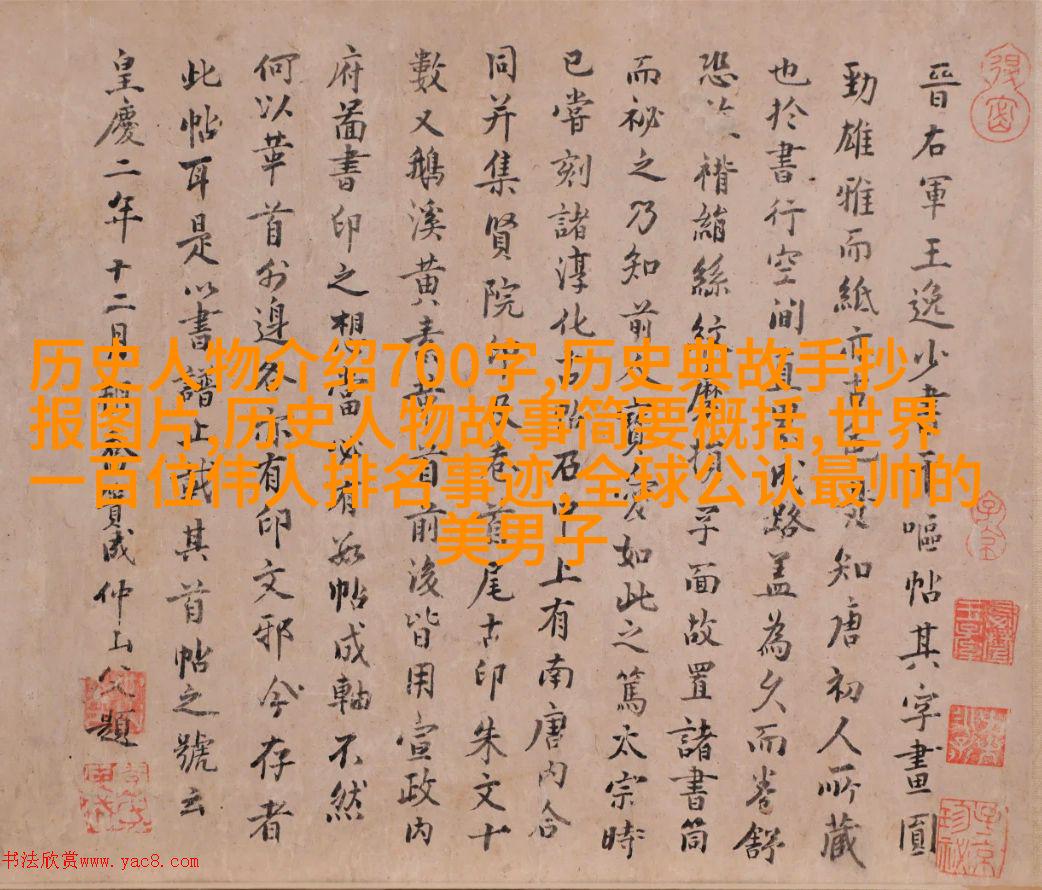 晉右軍王逸少書嘔帖其字畫圓
勁雄雅而紙亦古色知唐初人所藏
也於書行空澗直成路盖為久而卷舒
恐褙絹絲紋磨損字面故置諸書筒
而祕之乃知前人寶愛如此之篤太宗時
已嘗刻諸淳化古帖石上有南唐內合
同并集賢院尾古印朱文十
數又鵝溪黃素首前後皆用宣政內
府啚書印之想當必有數帖成軸不然
何以華首外邊各亦有印文邪今存者
此帖耳是以書譜止載其首帖之號云
皇慶二年十二月貢成仲玉父題
历史人物介绍700字,历史典故手抄
报图片,历史人物故事简要概括,世界
一百位伟人排名事迹,全球公认最帅的
美男子
书法欣赏www.yac8.com